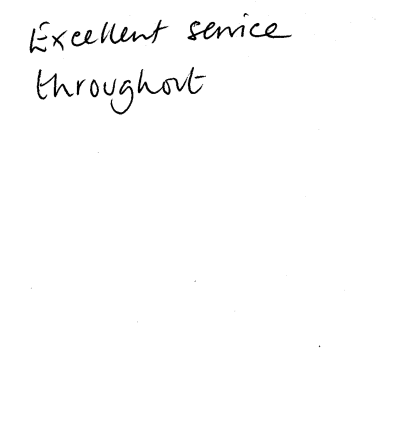 Excellent service
throughout